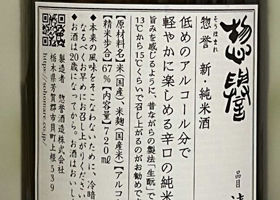 惣譽
そうほまれ
品目
惣誉 新・純米酒
低めのアルコール分で
軽やかに楽しめる辛口の純米
旨みを感じるように、昔ながらの製法「生酛」で
13℃から15℃くらいで召し上がるのがお勧めで
【原材料名】米(国産)、米麹(国産米)【アルコー
【精米歩合】67%【内容量】720ml
●本来の風味をそこなわないために、冷暗
なるべくお早めにお召し上がりください。
●お酒は20歳になってから。お酒はおいし
製造者 惣誉酒造株式会社
栃木県芳賀郡市貝町上根539